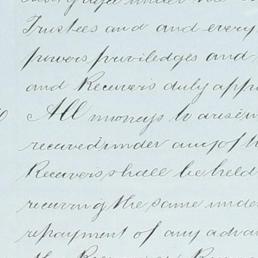 under the
Trustees and and every
powers priviledges and
and Receivers duly appo
All moneys to arise
received under any of th
Receivers shall be held
receiving the same unde
repayment of any adva